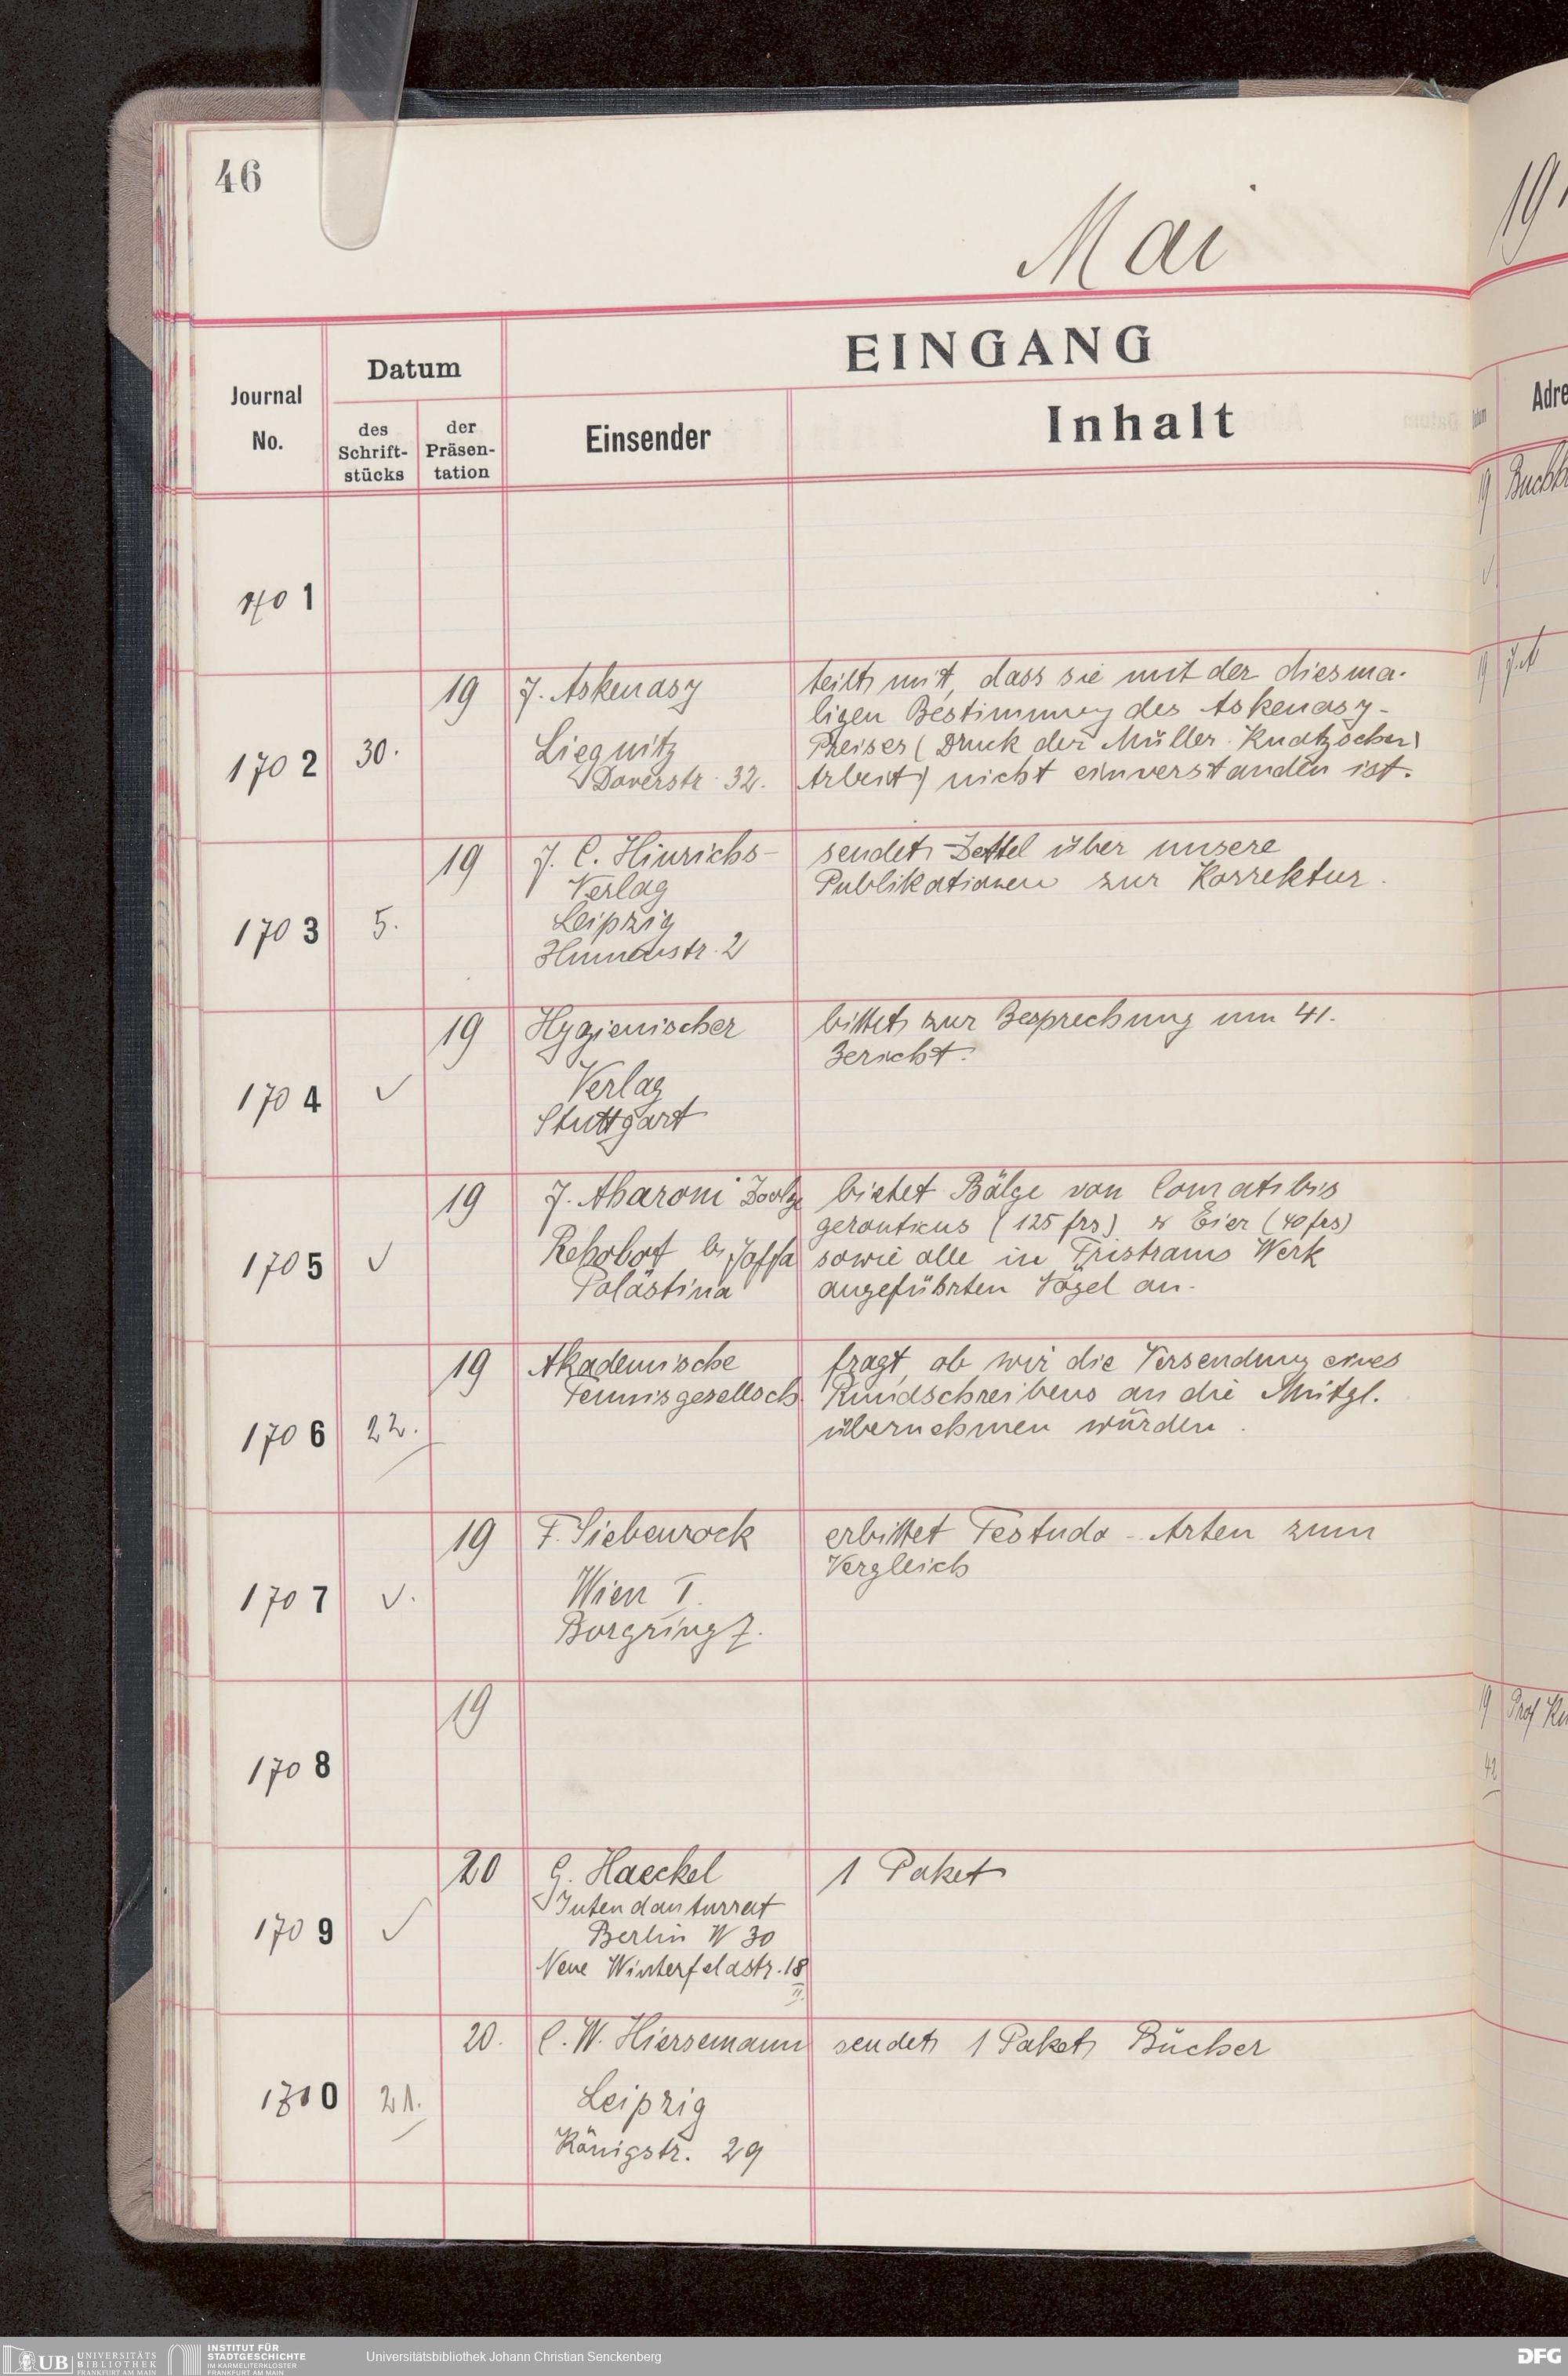 46
Mai
19
EINGANG
Journal No.
Datum
des Schrift-stücks
der Präsen-tation
Einsender
Inhalt
Adre
1701
19 Buchh
1702
30.
19
J. Askenasy
Liegnitz
Doverstr. 32.
teilt mit, dass sie mit der diesma-
ligen Bestimmung des Askenasy-
Preises (Druck der Müller Knatzscher
Arbeit) nicht einverstanden ist.
19
1703
5.
19
J. C. Hinrichs-
Verlag
Leipzig
sendet Zettel über unsere
Publikationen zur Korrektur.
1704
✓
19
Hygienischer
Verlag
Stuttgart
bittet zur Besprechung um 41.
Bericht.
1705
✓
19
J. Aharoni Zoolge
Rehobot b. Jaffa
Palästina
bietet Bälge von Comatibis
geronticus (125 frs) & Eier (40 frs)
sowie alle in Tristrams Werk
angeführten Vögel an.
1706
22.
19
Akademische
Tennisgesellsch.
fragt, ob wir die Versendung eines
Rundschreibens an die Mitgl.
übernehmen würden.
1707
✓.
19
F. Siebenrock
Wien I.
Burgring 7.
erbittet Testudo - Arten zum
Vergleich
1708
19
19 Prof
42
1709
✓
20
G. Haeckel
Intendanturrat
Berlin W 30
Neue Winterfeldstr. 18
II.
1 Paket
1710
21.
20.
C. W. Hiersemann
Leipzig
Königstr. 29
sendet 1 Paket Bücher
UB UNIVERSITÄTS BIBLIOTHEK FRANKFURT AM MAIN
INSTITUT FÜR STADTGESCHICHTE IM KARMELITERKLOSTER FRANKFURT AM MAIN
Universitätsbibliothek Johann Christian Senckenberg
DFG